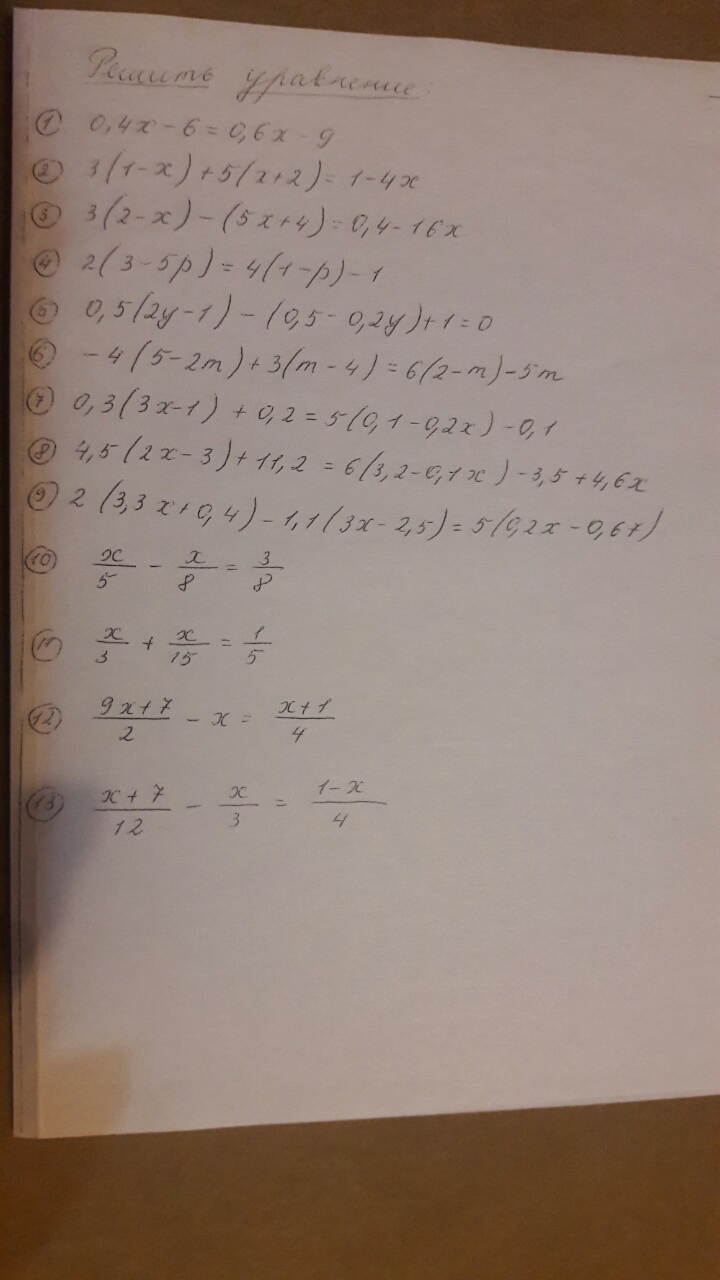 Решить уравнение:
① 0,4x - 6 = 0,6x - 9
② 3(1-x) + 5(x+2) = 1-4x
③ 3(2-x) - (5x+4) = 0,4-16x
④ 2(3-5p) = 4(1-p) - 1
⑤ 0,5(2y-1) - (0,5-0,2y) + 1 = 0
⑥ -4(5-2m) + 3(m-4) = 6(2-m) - 5m
⑦ 0,3(3x-1) + 0,2 = 5(0,1-0,2x) - 0,1
⑧ 4,5(2x-3) + 11,2 = 6(3,2-0,1x) - 3,5 + 4,6x
⑨ 2(3,3x+0,4) - 1,1(3x-2,5) = 5(0,2x-0,67)
⑩ x/5 - x/8 = 3/8
⑪ x/3 + x/15 = 1/5
⑫ (9x+7)/2 - x = (x+1)/4
⑬ (x+7)/12 - x/3 = (1-x)/4